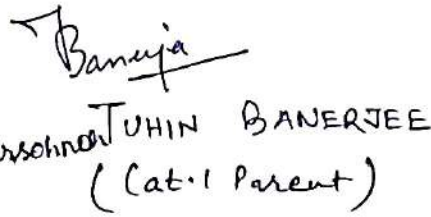 Banerja
TUHIN BANERJEE
(Cat.1 Parent)